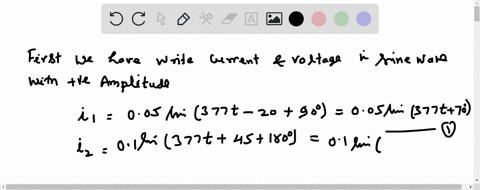 First we have write current & voltage in sine wave
with +ve Amplitude
i₁ = 0.05 sin (377t - 20 + 90°) = 0.05 sin (377t + 70)
①
i₂ = 0.1 sin (377t + 45 + 180°) = 0.1 sin (